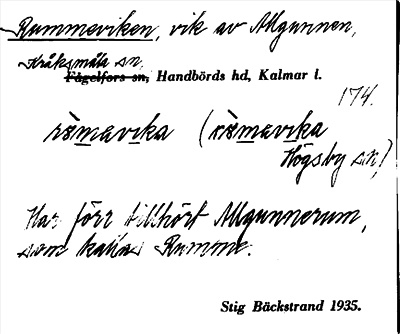 Rummeviken, vik av Allgunnen,
Kråksmåla sn,
Fågelfors sn, Handbörds hd, Kalmar l.
174.
römavika (römavika
Högsby sn,)
Har förr tillhört Allgunnerum,
som kallas Rumme.
Stig Bäckstrand 1935.